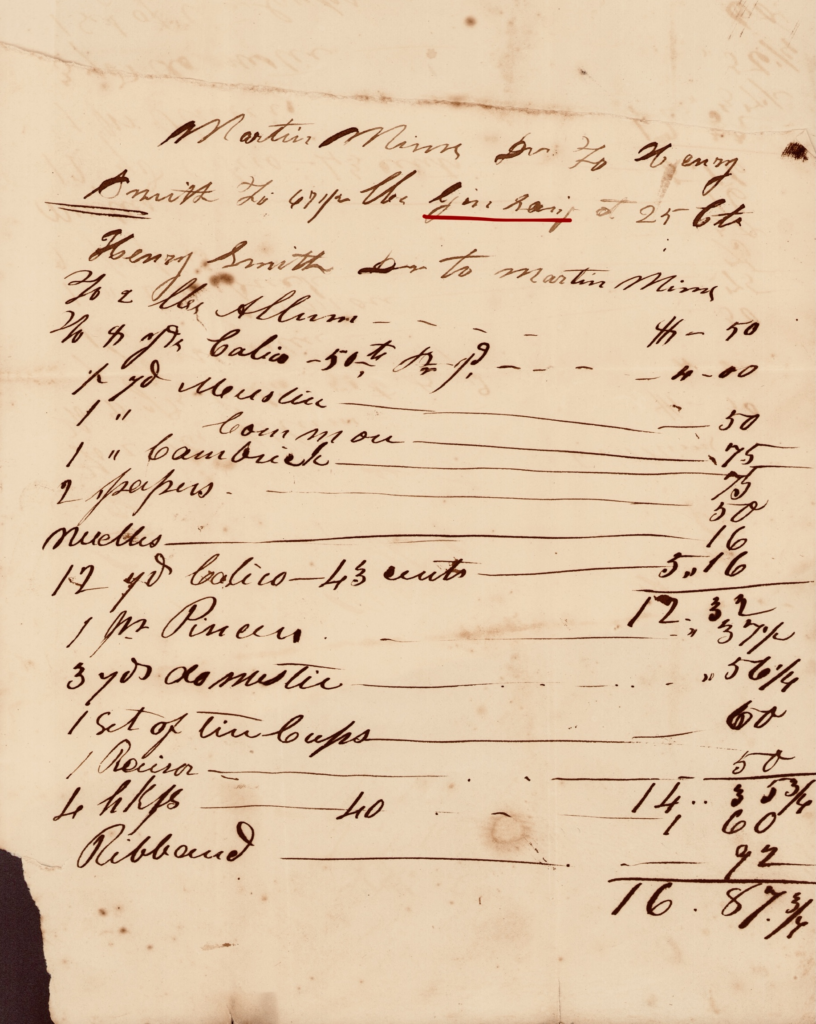 Martin Mims Dr To Henry
Smith To 67½ lbs Gin Sang at 25 Cts
Henry Smith Dr to Martin Mims
To 2 lbs Allum - - - - $ - 50
To 8 yds Calico - 50 cts pr yd. - - - - 4 - 00
½ yd Muslin 50
1 " Common 75
1 " Cambrick 75
2 papers. 50
Needles 16
12 yd Calico - 43 cents 5 " 16
12 . 32
1 pr Pincers . " 37½
3 yds domestic " 56¼
1 Set of tin Cups 60
1 Raisor 50
14 .. 35¾
4 hkfs 40 1 60
Ribband 92
16 . 87 . ¾